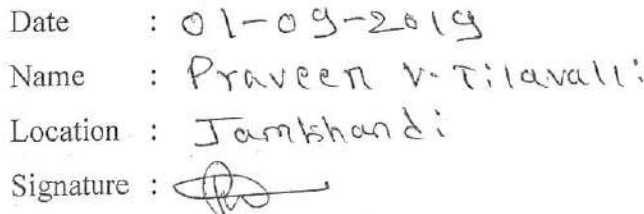 Date : 01-09-2019
Name : Praveen V. Tilavalli
Location : Jamkhandi
Signature :